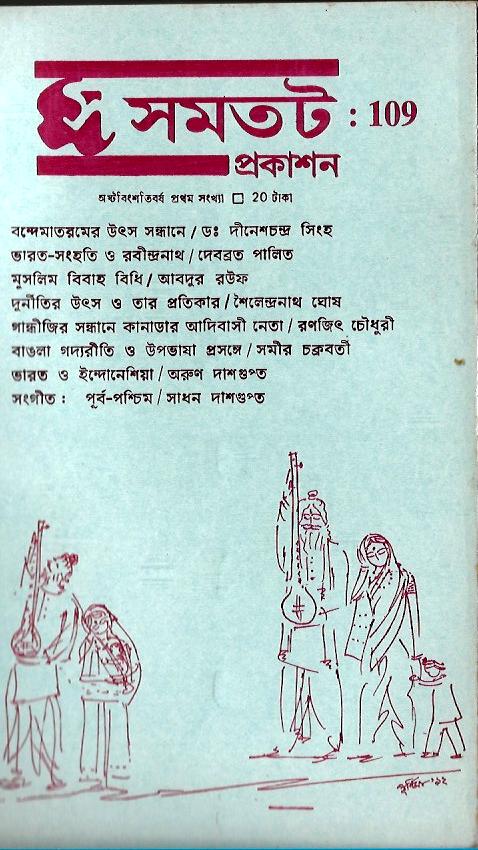 সমতট : 109
প্রকাশন
অষ্টবিংশতিবর্ষ প্রথম সংখ্যা □ 20 টাকা
বন্দেমাতরমের উৎস সন্ধানে / ডঃ দীনেশচন্দ্র সিংহ
ভারত-সংহতি ও রবীন্দ্রনাথ / দেবব্রত পালিত
মুসলিম বিবাহ বিধি / আবদুর রউফ
দুর্নীতির উৎস ও তার প্রতিকার / শৈলেন্দ্রনাথ ঘোষ
গান্ধীজির সন্ধানে কানাডার আদিবাসী নেতা / রণজিৎ চৌধুরী
বাঙলা গদ্যরীতি ও উপভাষা প্রসঙ্গে / সমীর চক্রবর্তী
ভারত ও ইন্দোনেশিয়া / অরুণ দাশগুপ্ত
সংগীত : পূর্ব-পশ্চিম / সাধন দাশগুপ্ত